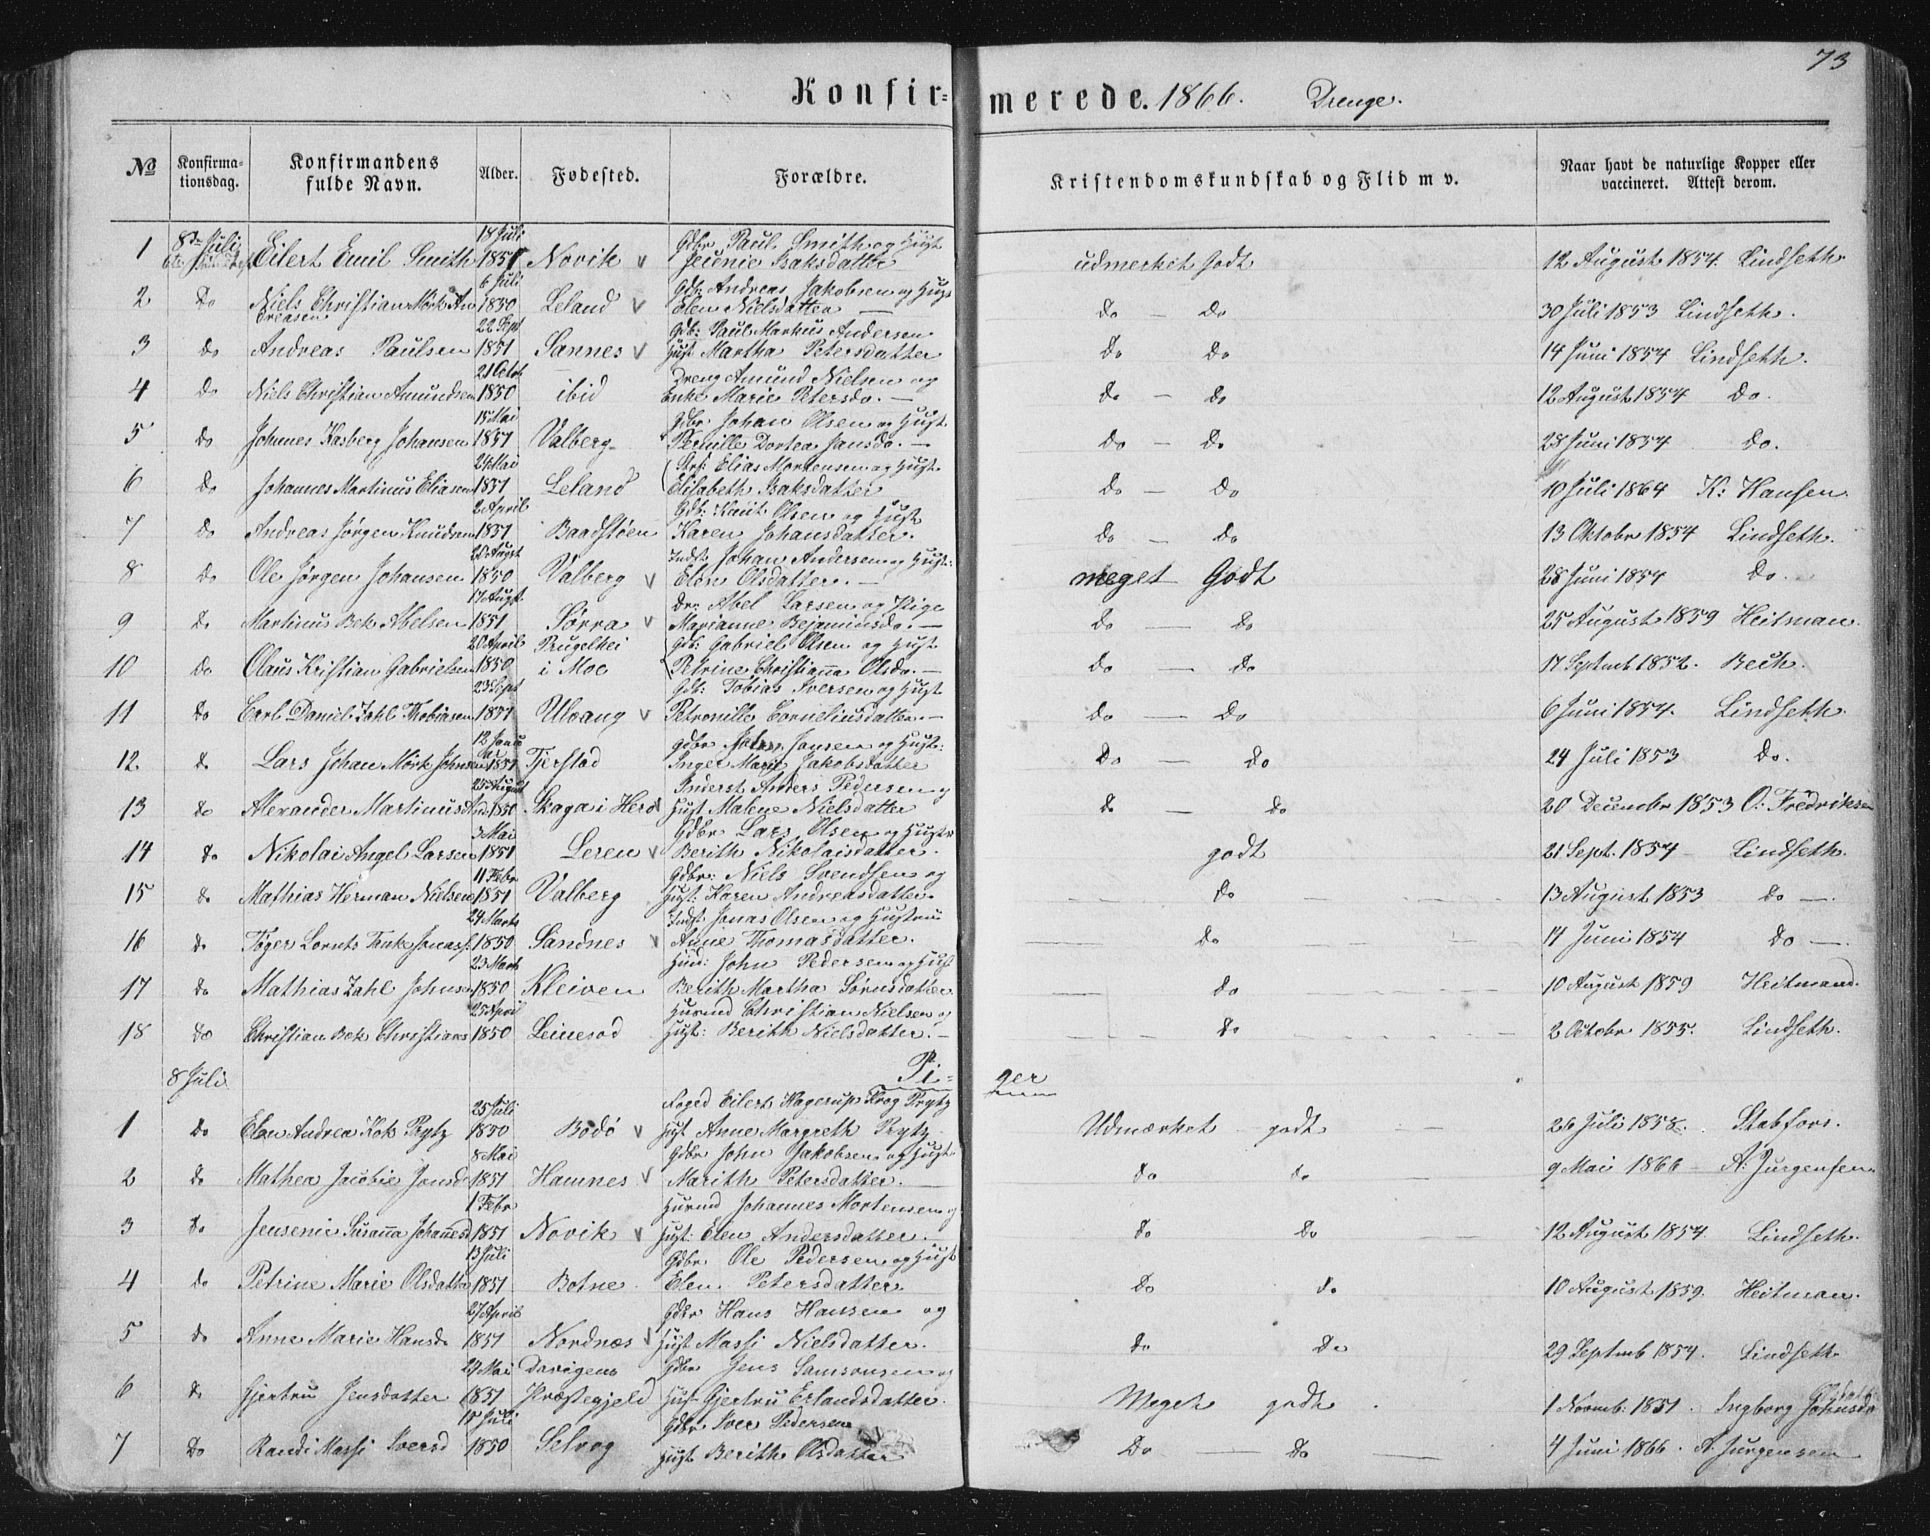 73
Konfirmerede. 1866. Drenge.
№ Konfirmationsdag. Konfirmandens fulde Navn. Alder. Fødested. Forældre. Kristendomskundskab og Flid m v. Naar havt de naturlige Kopper eller vaccineret. Attest derom.
1 8de Juli Eilert Emil Smith 18 Juli 1851 Novik v Gdbr Paul Smith og Hust Isaksdatter udmerket Godt 12 August 1854. Lindseth.
2 Do Niels Christian Mørk Andreasen 6 Juli 1850 Leland v Gdb: Andreas Jakobsen og Hust Elen Nielsdatter — do — do 30 Juli 1853 Lindseth.
3 do Andreas Paulsen 22 Sept 1851 Sannes v Gdb: Paul Markus Andersen Hust Martha Petersdatter do do 14 Juni 1854 Lindseth.
4 do Niels Christian Amundsen 21 Octob 1850 ibid Dreng Amund Nielsen og Enke Marie Petersda. — do — do 12 August 1854 do.
5 do Johannes Hasberg Johansen 15 Mai 1851 Valberg Gdbr Johan Olsen og Hust Pernille Dortea Jansda. — do — do 28 Juni 1854 do.
6 do Johannes Martinus Eliasen 24 Mai 1851 Leland Elias Mortensen og Hust. Elisabeth Isaksdatter do — do 10 Juli 1864 K: Hansen.
7 do Andreas Jørgen Knudsen 2 April 1851 Baadstøen Gdb: Knut Olsen og Hust Karen Johansdatter. do — do 13 Oktobr 1854 Lindseth.
8 do Ole Jørgen Johansen 20 August 1850 Valberg v Indst Johan Andersen og Hust: Elen Olsdatter. — meget Godt 28 Juni 1854 do.
9 do Martinus Bek Abelsen 17 Augst. 1851 Sørra v Dr: Abel Larsen og Pige Marianne Bejaminsda. — do — do 25 August 1859 Heitman.
10 do Olaus Kristian Gabrielsen 20 April 1850 i Moe Gdb: Gabriel Olsen og Hust Petrine Christianna Olsda. — do — do 17 Septmb 1852. Bech.
11 do Carl Daniel Zahl Thobiasen 23 Sept 1851 Ulvang v Gdb: Tobias Iversen og Hust Petronille Corneliusdatter. — do — do 6 Juni 1854. Lindseth.
12. do Lars Johan Mørk Johnsen 12 Januar 1851 Tjerstad Gdbr Jansen og Hust: Inger Marie Jakobsdatter do — do 24 Juli 1853 Do.
13 do Alexander Martinus And. 25 August 1850 Skaga i Herø Inderst Anders Pedersen og Hust Malene Nielsdatter do — do 20 Decembr 1853 O: Fredriksen
14 do Nikolai Angel Larsen 3 Mai 1851 Leren v Gdbr Lars Olsen og Hustr Berith Nikolaisdatter. godt 21 Sept. 1854 Lindseth.
15 do Mathias Herman Nielsen 11 Febr 1851 Valberg Gdbr: Niels Svendsen og Hust: Karen Andreasdatter. do 13 August 1853 do —.
16 do Tøger Lornts Tank Jonass. 24 Marts 1850 Sandnes v Indst: Jonas Olsen og Hustru Anne Thomasdatter. do 14 Juni 1854 do —.
17 do Mathias Zahl Johnsen 23 Marts 1850 Kleiven John Pedersen og Hust Berith Martha Sørnsdatter do 10 August 1859 Heitmand.
18 do Christian Bek Christians 25 April 1850 Leinesød Husmd Christian Nielsen og Hust: Berith Nielsdatter. — do 2 Octobr 1855. Lindseth.
8 Juli Piger
1 do Elen Andrea Kok Prytz 25 Juli 1850 Bodø v Foged Eilert Hagerup Krog Prytz Hust Anne Margreth Prytz Udmærket godt 26 Juli 1858. Stabfors.
2 do Mathea Jacobie Jonsd 8 Mai 1851 Hamnes v Gdbr John Jakobsen og Hust Marith Petersdatter. — do do 9 Mai 1866 A: Jurgensen
3 do Jensenie Susanna Johannesd 1 Febr 1851 Novik v Husmd Johannes Mortensen og Hust: Elen Andersdatter. do do 12 August 1854. Lindseth.
4 do Petrine Marie Olsdatter 13 Juli 1851 Botne Gdbr Ole Pedersen og Hust Elen Petersdatter do do 10 August 1859. Heitman.
5 do Anne Marie Hansda 27 April 1851 Nordnæs v Gdbr Hans Hansen og Hust Massi Nielsdatter. do do 29 Septmb 1854. Lindseth
6 do Gjertru Jensdatter 24 Mai 1851 Præstegjeld Gdbr Jens Samsonsen og Hust Gjertru Erlandsdatter. Meget godt. 1 Novmb. 1851. Ingborg Johnsda
7 do Randi Massi Iversd 15 Juli 1850 Selvog Gdbr Iver Pedersen Hust Berith Olsdatter Do — do 4 Juni 1866. A. Jurgensen